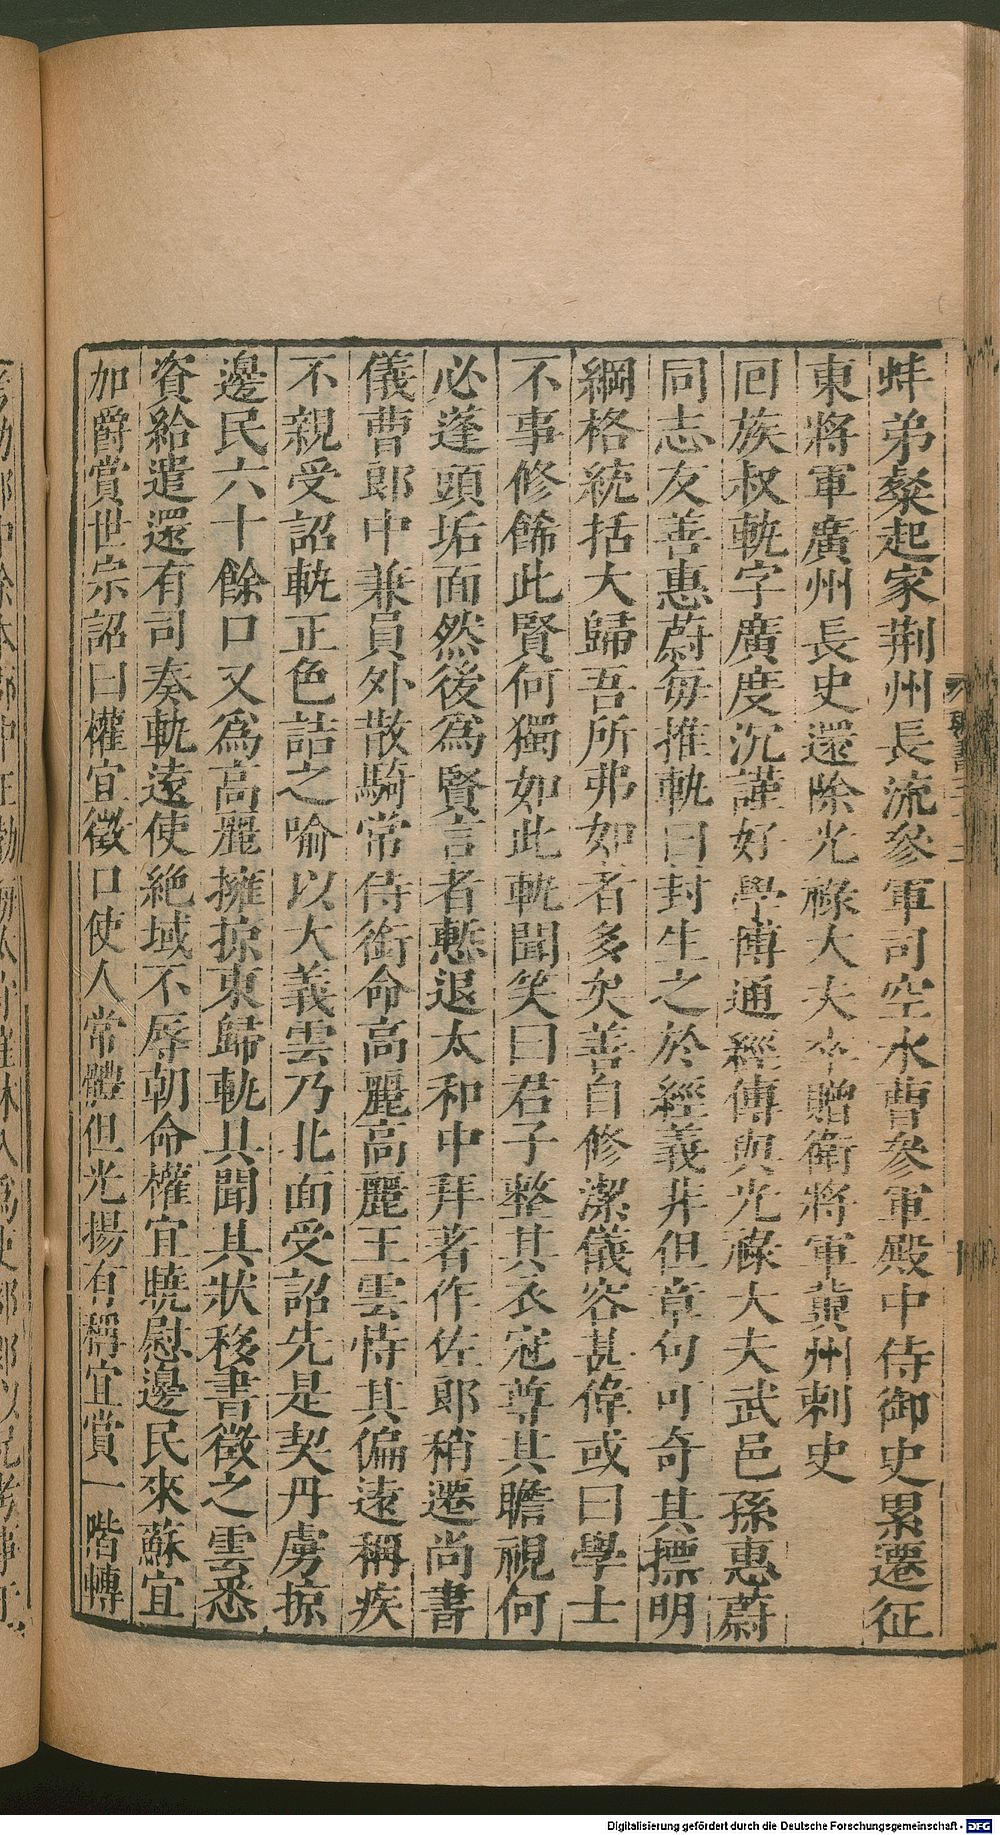 蚌弟粲起家荆州長流參軍司空水曹參軍殿中侍御史累遷征
東將軍廣州長史還除光祿大夫卒贈衛將軍冀州刺史
回族叔軌字廣度沉謹好學博通經傳與光祿大夫武邑孫惠蔚
同志友善惠蔚每推軌曰封生之於經義非但章句可奇其摽明
綱格統括大歸吾所弗如者多矣善自修潔儀容甚偉或曰學士
不事修餙此賢何獨如此軌聞笑曰君子整其衣冠尊其瞻視何
必蓬頭垢面然後爲賢言者慙退太和中拜著作佐郎稍遷尚書
儀曹郎中兼員外散騎常侍銜命高麗高麗王雲恃其偏遠稱疾
不親受詔軌正色詰之喻以大義雲乃北面受詔先是契丹虜掠
邊民六十餘口又爲高麗擁掠東歸軌具聞其狀移書徵之雲悉
資給遣還有司奏軌遠使絶域不辱朝命權宜曉慰邊民來蘇宜
加爵賞世宗詔曰權宜徵口使人常體但光揚有稱宜賞一階轉
Digitalisierung gefördert durch die Deutsche Forschungsgemeinschaft - DFG